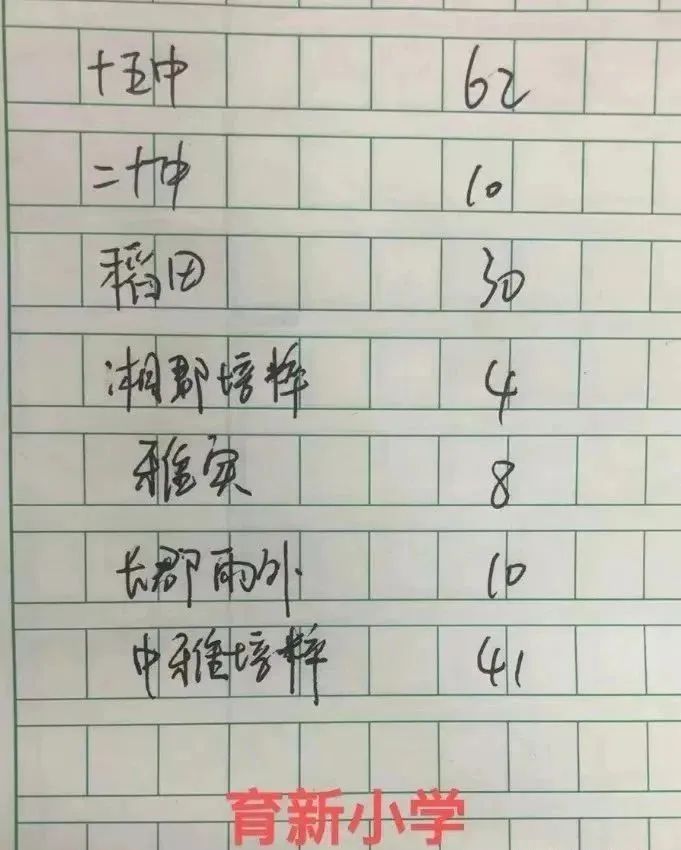 十五中 62
二十中 10
稻田 30
湘郡培粹 4
雅实 8
长郡雨外 10
中雅培粹 41
育新小学